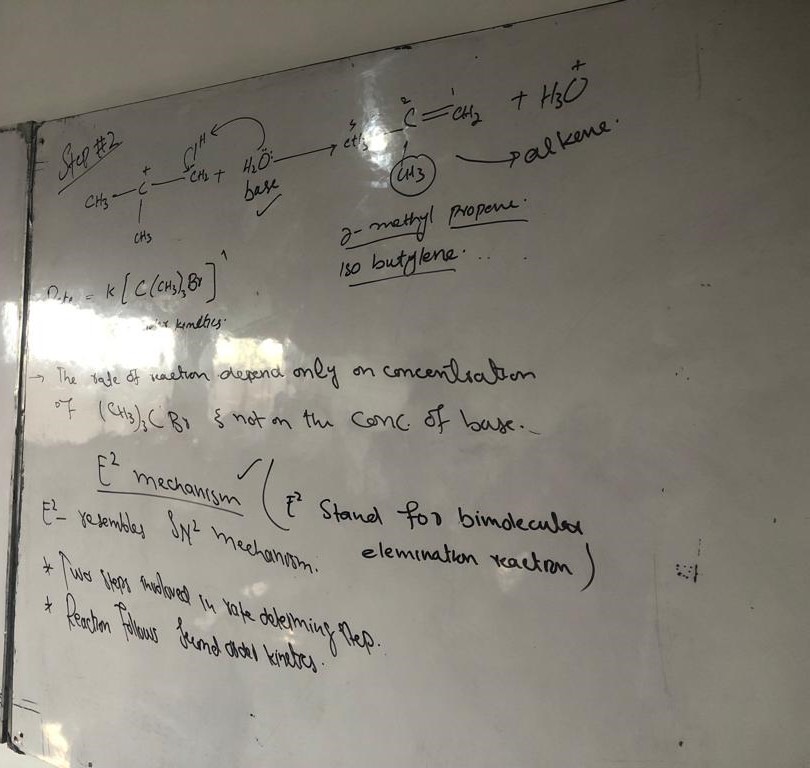 Step #2
H
CH3 — C+ — CH2 + H2Ö: → CH3 — C = CH2 + H3O+
3 2 1
base
CH3
CH3 → alkene.
2-methyl propene.
Iso butylene.
= K [C(CH3)3Br]1
kinetics.
→ The rate of reaction depend only on concentration
of (CH3)3C Br & not on the conc. of base.
E2 mechanism ✓ (E2 Stand for bimolecular
elemination reaction)
E2 - resembles SN2 mechanism.
* Two steps involved in rate determining step.
* Reaction follows second order kinetics.